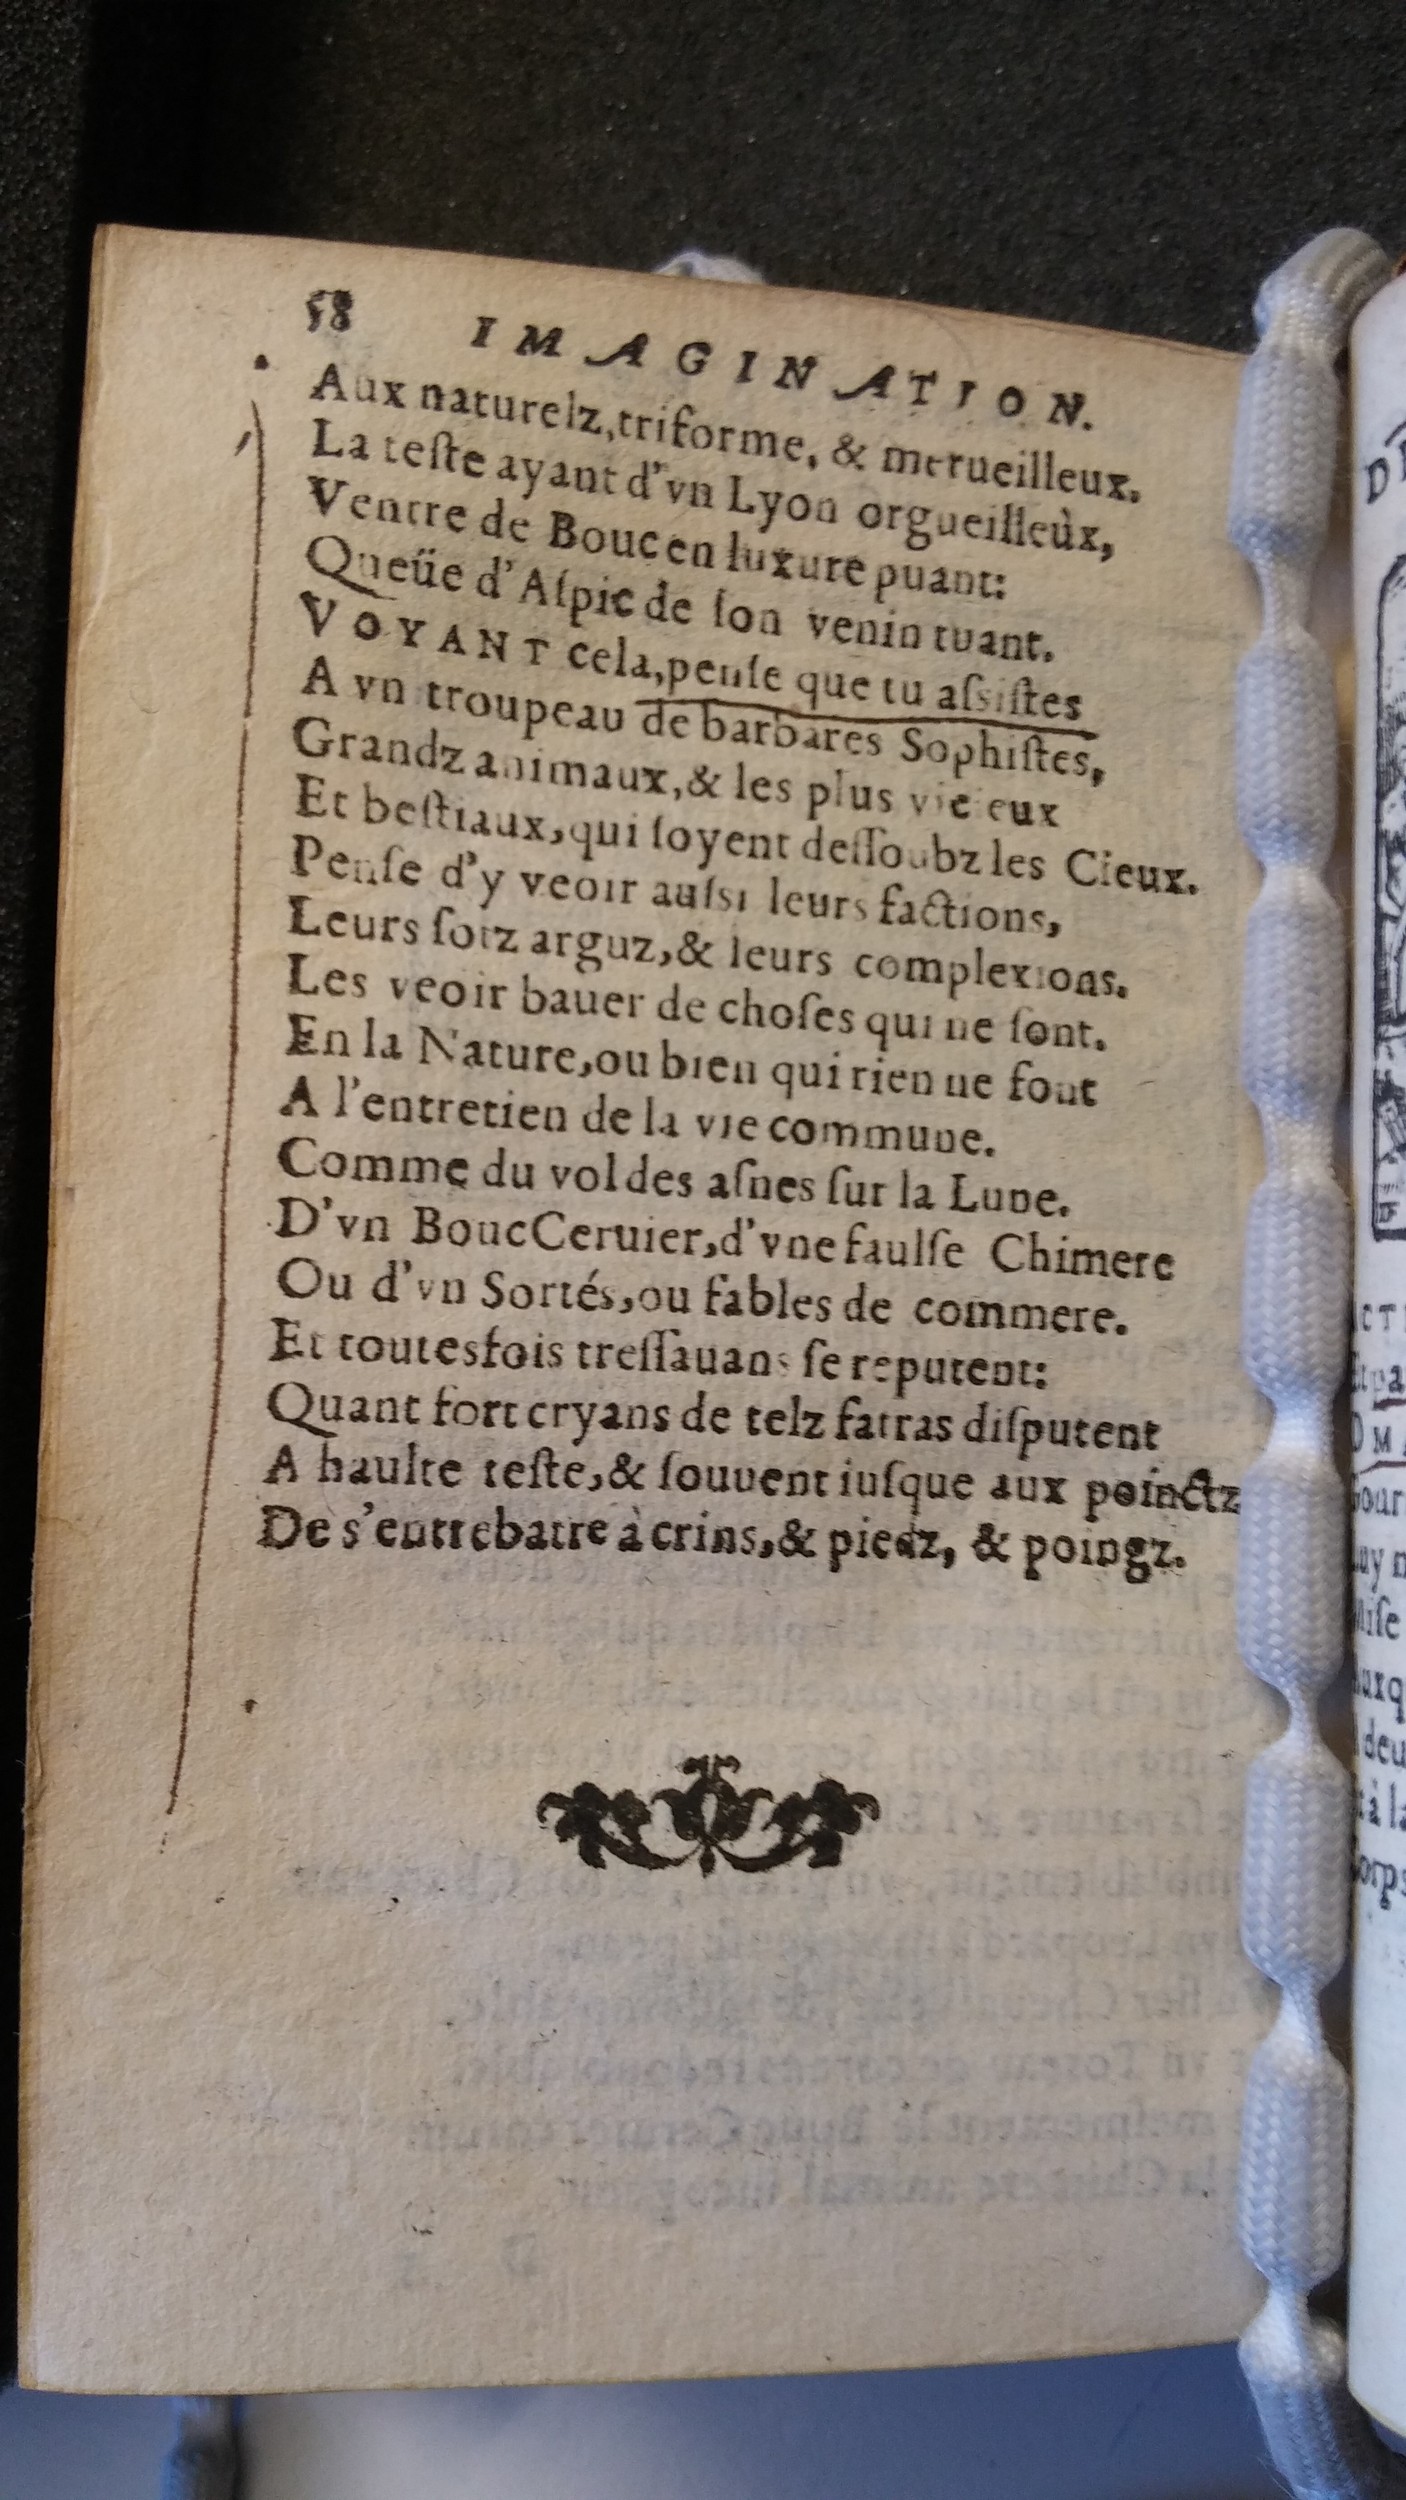 58 IMAGINATION.
Aux naturelz, triforme, & merueilleux.
La teſte ayant d'vn Lyon orgueilleùx,
Ventre de Bouc en luxure puant:
Queüe d'Aſpic de ſon venin tuant.
VOYANT cela, penſe que tu aſsiſtes
A vn troupeau de barbares Sophiſtes,
Grandz animaux, & les plus vicieux
Et beſtiaux, qui ſoyent deſſoubz les Cieux.
Penſe d'y veoir auſsi leurs factions,
Leurs ſotz arguz, & leurs complexions.
Les veoir bauer de choſes qui ne ſont.
En la Nature, ou bien qui rien ne font
A l'entretien de la vie commune.
Comme du vol des aſnes ſur la Lune.
D'vn Bouc Ceruier, d'vne faulſe Chimere
Ou d'vn Sortés, ou fables de commere.
Et toutesfois treſſauans ſe reputent:
Quant fort cryans de telz fatras diſputent
A haulte teſte, & ſouuent iuſque aux poinctz
De s'entrebatre à crins, & piedz, & poingz.